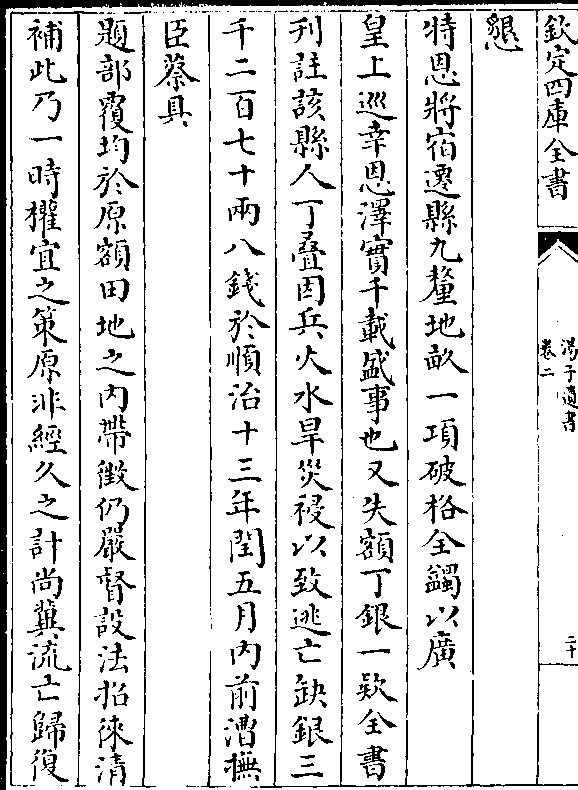 欽定四庫全書
湯子遺書
卷二
二十
懇
特恩將宿遷縣九釐地畝一項破格全蠲以廣
皇上巡幸恩澤實千載盛事也又失額丁銀一欵全書
刋註該縣人丁疊因兵火水旱災祲以致逃亡缺銀三
千二百七十兩八錢於順治十三年閏五月內前漕撫
臣蔡具
題部覆均於原額田地之內帶徵仍嚴督設法招徠清
補此乃一時權宜之策原非經久之計尚冀流亡歸復